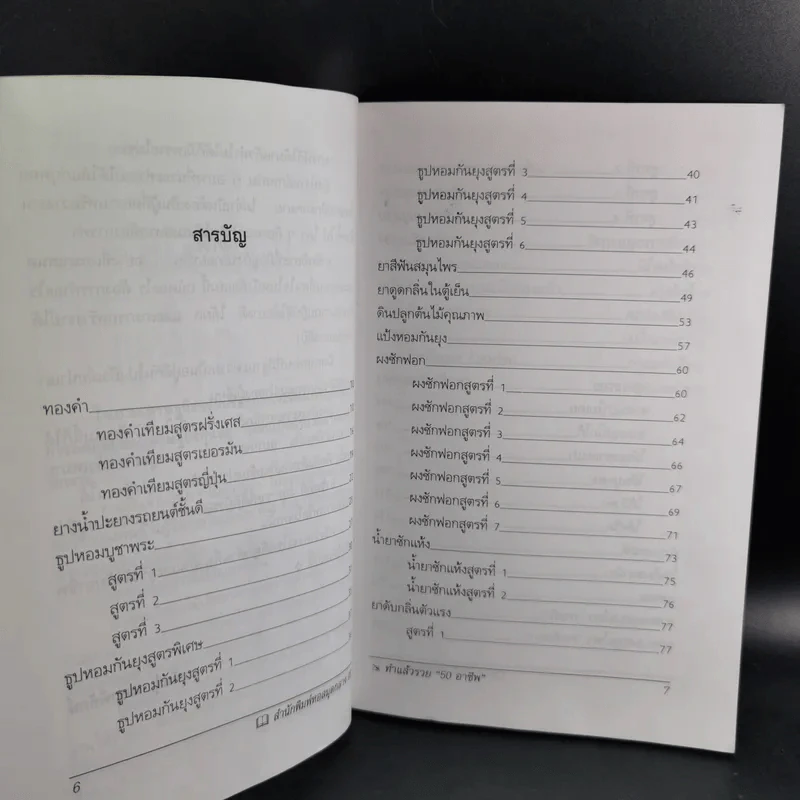 สารบัญ
ทองคำ
ทองคำเทียมสูตรฝรั่งเศส
ทองคำเทียมสูตรเยอรมัน
ทองคำเทียมสูตรญี่ปุ่น
ยางน้ำปะยางรถยนต์ชั้นดี
ธูปหอมบูชาพระ
สูตรที่ 1
สูตรที่ 2
สูตรที่ 3
ธูปหอมกันยุงสูตรพิเศษ
ธูปหอมกันยุงสูตรที่ 1
ธูปหอมกันยุงสูตรที่ 2
สำนักพิมพ์หอสมุดกลาง
6
ธูปหอมกันยุงสูตรที่ 3 40
ธูปหอมกันยุงสูตรที่ 4 41
ธูปหอมกันยุงสูตรที่ 5 43
ธูปหอมกันยุงสูตรที่ 6 44
ยาสีฟันสมุนไพร 46
ยาดูดกลิ่นในตู้เย็น 49
ดินปลูกต้นไม้คุณภาพ 53
แป้งหอมกันยุง 57
ผงซักฟอก 60
ผงซักฟอกสูตรที่ 1 60
ผงซักฟอกสูตรที่ 2 62
ผงซักฟอกสูตรที่ 3 64
ผงซักฟอกสูตรที่ 4 66
ผงซักฟอกสูตรที่ 5 67
ผงซักฟอกสูตรที่ 6 69
ผงซักฟอกสูตรที่ 7 71
น้ำยาซักแห้ง 73
น้ำยาซักแห้งสูตรที่ 1 75
น้ำยาซักแห้งสูตรที่ 2 76
ยาดับกลิ่นตัวแรง 77
สูตรที่ 1 77
ทำแล้วรวย "50 อาชีพ" 7